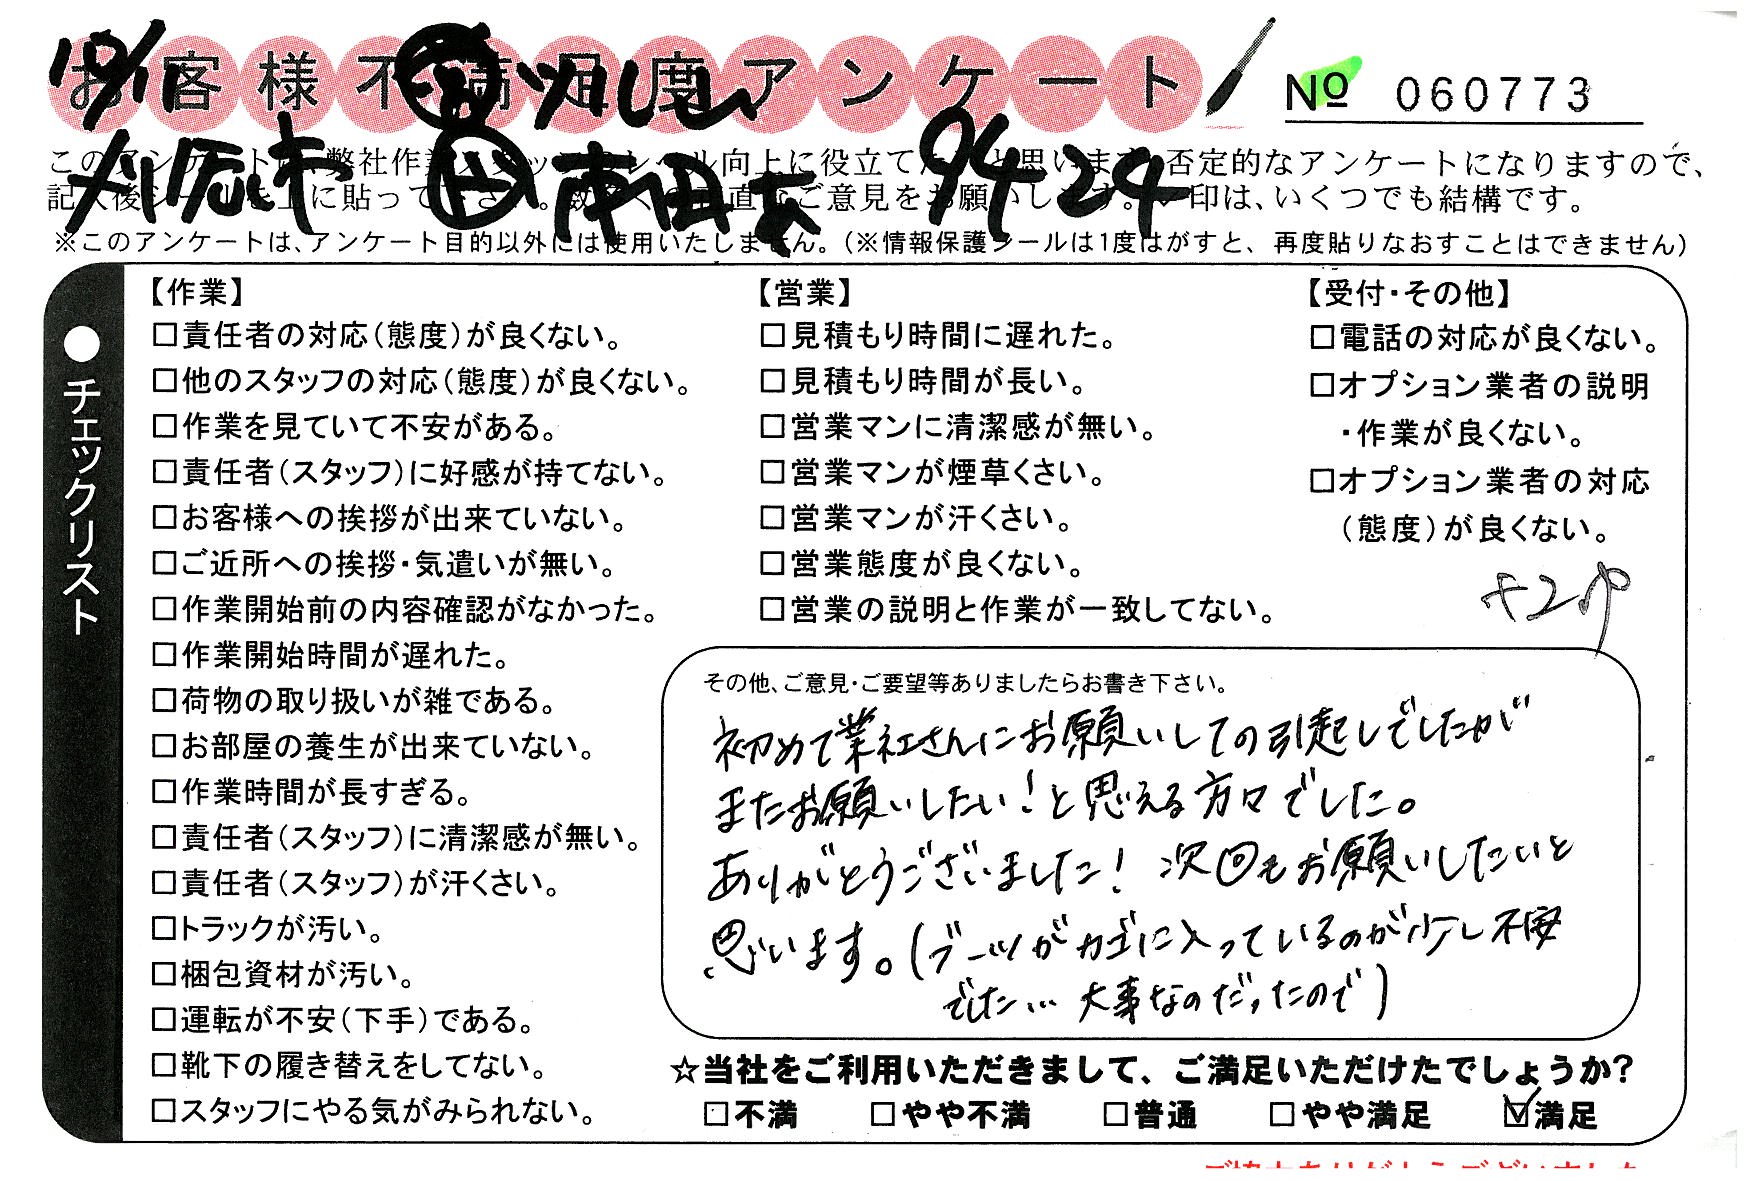 お客様不満足度アンケート
№ 060773
10/11
刈谷市
9424
このアンケートは、弊社作業スタッフのレベル向上に役立てたいと思います。否定的なアンケートになりますので、
記入後シールを上に貼って下さい。数多くの正直なご意見をお願いします。✓印は、いくつでも結構です。
※このアンケートは、アンケート目的以外には使用いたしません。（※情報保護シールは1度はがすと、再度貼りなおすことはできません）
●チェックリスト
【作業】
□責任者の対応（態度）が良くない。
□他のスタッフの対応（態度）が良くない。
□作業を見ていて不安がある。
□責任者（スタッフ）に好感が持てない。
□お客様への挨拶が出来ていない。
□ご近所への挨拶・気遣いが無い。
□作業開始前の内容確認がなかった。
□作業開始時間が遅れた。
□荷物の取り扱いが雑である。
□お部屋の養生が出来ていない。
□作業時間が長すぎる。
□責任者（スタッフ）に清潔感が無い。
□責任者（スタッフ）が汗くさい。
□トラックが汚い。
□梱包資材が汚い。
□運転が不安（下手）である。
□靴下の履き替えをしてない。
□スタッフにやる気がみられない。
【営業】
□見積もり時間に遅れた。
□見積もり時間が長い。
□営業マンに清潔感が無い。
□営業マンが煙草くさい。
□営業マンが汗くさい。
□営業態度が良くない。
□営業の説明と作業が一致してない。
【受付・その他】
□電話の対応が良くない。
□オプション業者の説明
・作業が良くない。
□オプション業者の対応
（態度）が良くない。
+2P
その他、ご意見・ご要望等ありましたらお書き下さい。
初めて業社さんにお願いしての引越しでしたが
またお願いしたい！と思える方々でした。
ありがとうございました！次回もお願いしたいと
思います。（ブーツがカゴに入っているのが少し不安
でした… 大事なのだったので）
☆当社をご利用いただきまして、ご満足いただけたでしょうか？
□不満 □やや不満 □普通 □やや満足 ☑満足